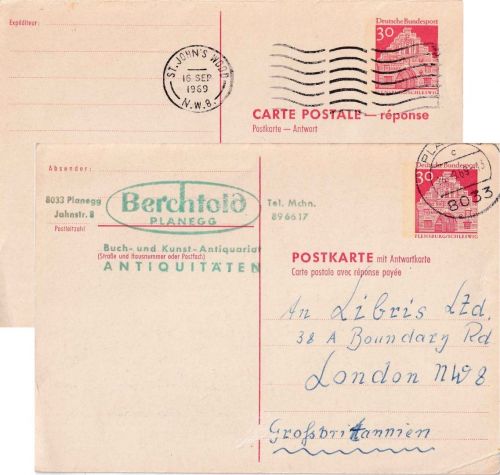 Expéditeur:
ST. JOHN'S WOOD
16 SEP
1969
N.W.8.
Deutsche Bundespost
30
FLENSBURG/SCHLESWIG
CARTE POSTALE — réponse
Postkarte — Antwort
Absender:
8033 Planegg
Jahnstr. 8
Postleitzahl
Berchtold
PLANEGG
Tel. Mchn.
896617
Buch- und Kunst-Antiquariat
(Straße und Hausnummer oder Postfach)
ANTIQUITÄTEN
c
8033
Deutsche Bundespost
30
FLENSBURG/SCHLESWIG
POSTKARTE mit Antwortkarte
Carte postale avec réponse payée
An Libris Ltd.
38 A Boundary Rd
London NW8
Großbritannien